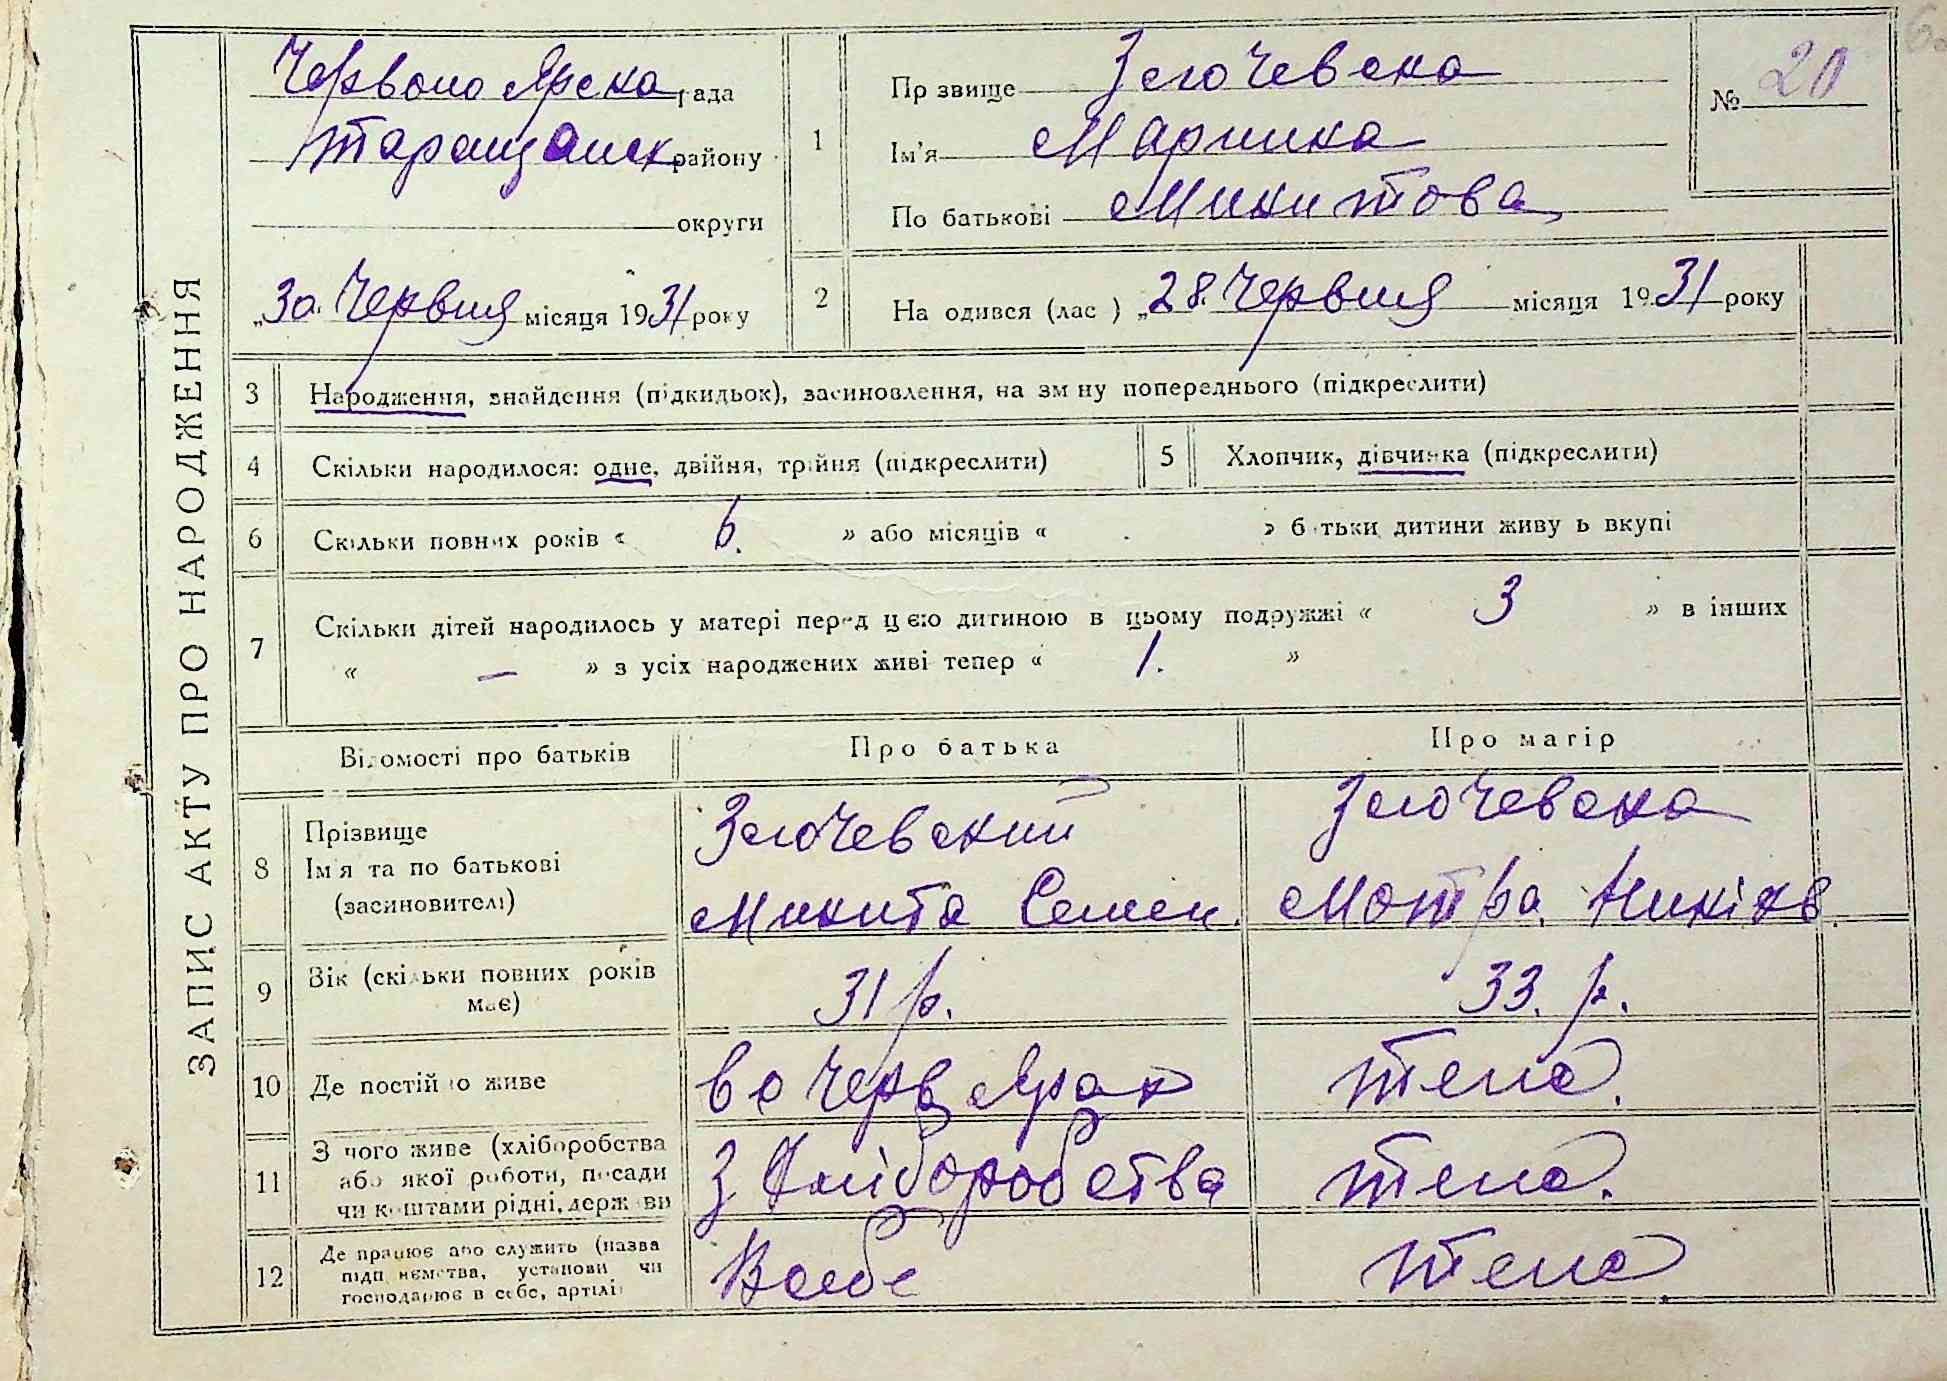 ЗАПИС АКТУ ПРО НАРОДЖЕННЯ
Червоно Ярска рада
Таращанск району
округи
„30. Червня місяця 1931 року
1
Пр звище Злочевска
Ім'я Марийка
По батькові Микитова
№ 20
2
На одився (лас ) „28. Червня місяця 1931 року
3 Народження, знайдення (підкидьок), засиновлення, на зм ну попереднього (підкреслити)
4 Скільки народилося: одне, двійня, трійня (підкреслити)
5 Хлопчик, дівчинка (підкреслити)
6 Скільки повних років « 6. » або місяців « » б тьки дитини живу ь вкупі
7 Скільки дітей народилось у матері перед цією дитиною в цьому подружжі « 3 » в інших
« — » з усіх народжених живі тепер « 1. »
Відомості про батьків
Про батька
Про матір
8 Прізвище
Ім'я та по батькові
(засиновителі)
Злочевский
Микита Семен.
Злочевска
Мотра
9 Вік (скільки повних років
має)
31 р.
33. р.
10 Де постійно живе
в с Черв Ярах
тена.
11 З чого живе (хліборобства
або якої роботи, посади
чи коштами рідні, держави
З Хліборобства
тена.
12 Де працює або служить (назва
підп иємства, установи чи
господарює в себе, артілі
Всебе
тена